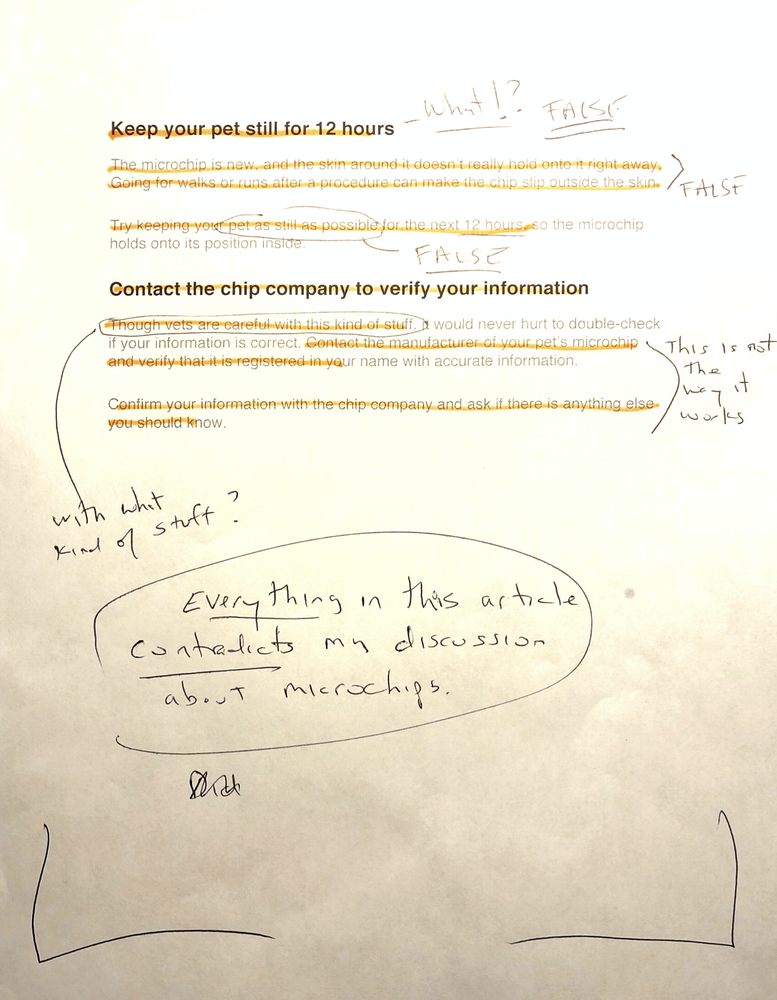 What!? FALSE
Keep your pet still for 12 hours
The microchip is new, and the skin around it doesn't really hold onto it right away.
Going for walks or runs after a procedure can make the chip slip outside the skin.
FALSE
Try keeping your pet as still as possible for the next 12 hours, so the microchip
holds onto its position inside.
FALSE
Contact the chip company to verify your information
Though vets are careful with this kind of stuff, it would never hurt to double-check
if your information is correct. Contact the manufacturer of your pet's microchip
and verify that it is registered in your name with accurate information.
This is not
the
way it
works
Confirm your information with the chip company and ask if there is anything else
you should know.
with what
kind of stuff?
Everything in this article
contradicts my discussion
about microchips.